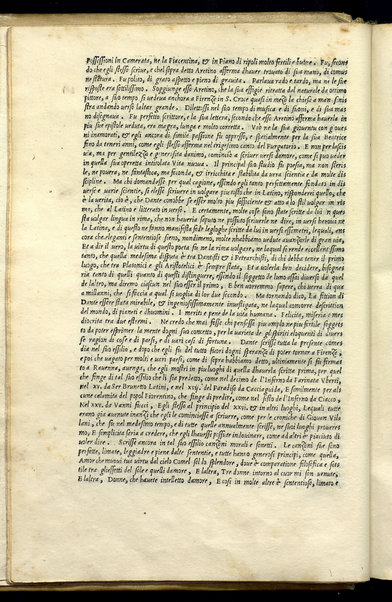 Possessioni in Camerata, ne la Piacentina, & in Piano di ripoli molto fertili e buone. Fu, secon
do che egli stesso scriue, e chel sopra detto Aretino afferma dhauer trouato di sua mano, di comu
ne statura. Fu polito, di grato aspetto e pieno di grauita. Parlaua rado e tardo, ma ne le sue
risposte era sottilissimo. Soggiunge esso Aretino, che la sua effigie ritratta del naturale da ottimo
pittore, a suo tempo si uedeua anchora a Firenze in S. Croce quasi in mezo la chiesa a man sini
stra andando uerso laltar grande. Dilettossi nel suo tempo di musica e di suoni, e di sua ma
no disegnaua. Fu perfetto scrittore, e la sua lettera, secondo che esso Aretino afferma hauerla in
piu sue epistole uedute, era magra, lunga e molto corretta. Visse ne la sua giouentu con gioua
ni inamorati, & egli ancora di simile passione fu oppresso, e spetialmente per la sua Beatrice
fino da teneri anni, come egli stesso afferma nel trigesimo canto del Purgatorio. E non per lasci
uia, ma per gentilezza e generosita danimo, comincio a scriuer uersi damore, come si puo ueder
in quella sua operetta intitolata Vita nuoua. Il principal suo studio fu poesia, ma non steri
le, ne pouera, ne fantastica, ma feconda, & irricchita e stabilita da uera scientia e da molte di
scipline. Ma chi domandasse per qual cagione, essendo egli tanto perfettamente fondato in di
uerse e uarie scientie, si eleffe scriuere in uolgare piu tosto che in Latino, risponderei quello, che
è la uerita, cio è, che Dante conobbe se esser molto piu sufficiente & atto a lo stil uolgar in ri
ma, che al Latino e litterato in uerso. E certamente, molte cose sono state scritte da lui in que
sta uolgar lingua in rima, che non haueria saputo ne possuto scriuerle ne dire, in uersi heroici ne
la Latina, e di questo ne fanno manifesta fede legloghe scritte da lui in uersi essametri, lequali, an
cora che eleganti e sententiose sieno, nondimeno, molte nhabbiamo uedute auanzarle di gran lon
Et a dir il uero, la uirtu di questo poeta fu ne la rima uolgare, ne laqual fu rende ricellentissimo
tento, che quella medesima disputa è tra Dantisti & i Petrarchisti, di chi debba tener il primo
luogo, che tra Platonici e gli Aristotelici è sempre stata. Et a uolerla ben decidere, bisogneria
ria tanto di quelli quanto di questi distinguendo, essendo il soggetto de luno assai diuerso da quel
de laltro, ma diremo ciascun nel suo esser il primo. E ben uorremmo sapere, chi uerra di qua
a millanni, che si faccia a qual si uoglia di lor due secondo. Ma tornando dico, La fittion di
Dante esser stata mirabile, & ingeniosissimamente inuestigata, ne laqual concorre descrittion
del mondo, di pianeti, e chuomini. I meriti e pene de la uita humana. Felicita, miseria e me
diocrita tra due estremi. Ne credo che mai fosse chi prendesse piu amplo ne piu fertile soggetto
da poter esprimer la mente dogni suo concetto, per la uarieta de gli spiriti eloquenti di diuer
se ragion di cose e di paesi, e di uari casi di fortuna. Dante scrisse tutta la presente come
dia nel suo essilio, e dopo che egli fu del tutto fuori dogni speranza di poter tornar a Firenze,
e poi che uagato per molti e uari paesi, come di sopra habbiamo detto, ultimamente si fu ferma
to a Rauenna, auenga, che egli mostri in piu luoghi di quella hauerla scritta prima, per quel
che finge di tal suo essilio che li sia predetto, come nel decimo de L'inferno da Farinata Vberti,
nel xv. da Ser Brunetto Latini, e nel xvij. del Paradiso da Cacciaguida, E simigliantemente per alcu
cune calamita del popol Fiorentino, che finge di predire, come nel sesto de l'inferno da Ciacco
Nel xxv. da Vanni fucci, Egli stesso al principio del xxvi. & in altri luoghi, Lequali tutte
erano gia auenute innanzi che egli le cominciasse a scriuere, come per le croniche di Giouan Villa
lani, che fu nel medesimo tempo, e di tutte quelle annualmente scrisse, ne suoi luoghi prouere
mo, E simplicita seria a credere, che egli lhauesse possute indouinare, come ad altri è piaciuto di
uoler dire. Scrisse ancora in tal suo essilio canzoni morali e sonetti. Le canzoni sue sono
perfette, limate, leggiadre e piene dalte sententie, e tutte hanno generosi principi, come quella,
Amor che muoui tua uirtu dal cielo Comel sol lo splendore, doue è comparatione filosofica e sot
tile tra glieffetti del sole e quelli damore, E laltra, Tre donne intorno al cuor mi son uenute,
E laltra, Donne, che hauete intelletto damore, E cosi in molte altre è sententioso, limato e